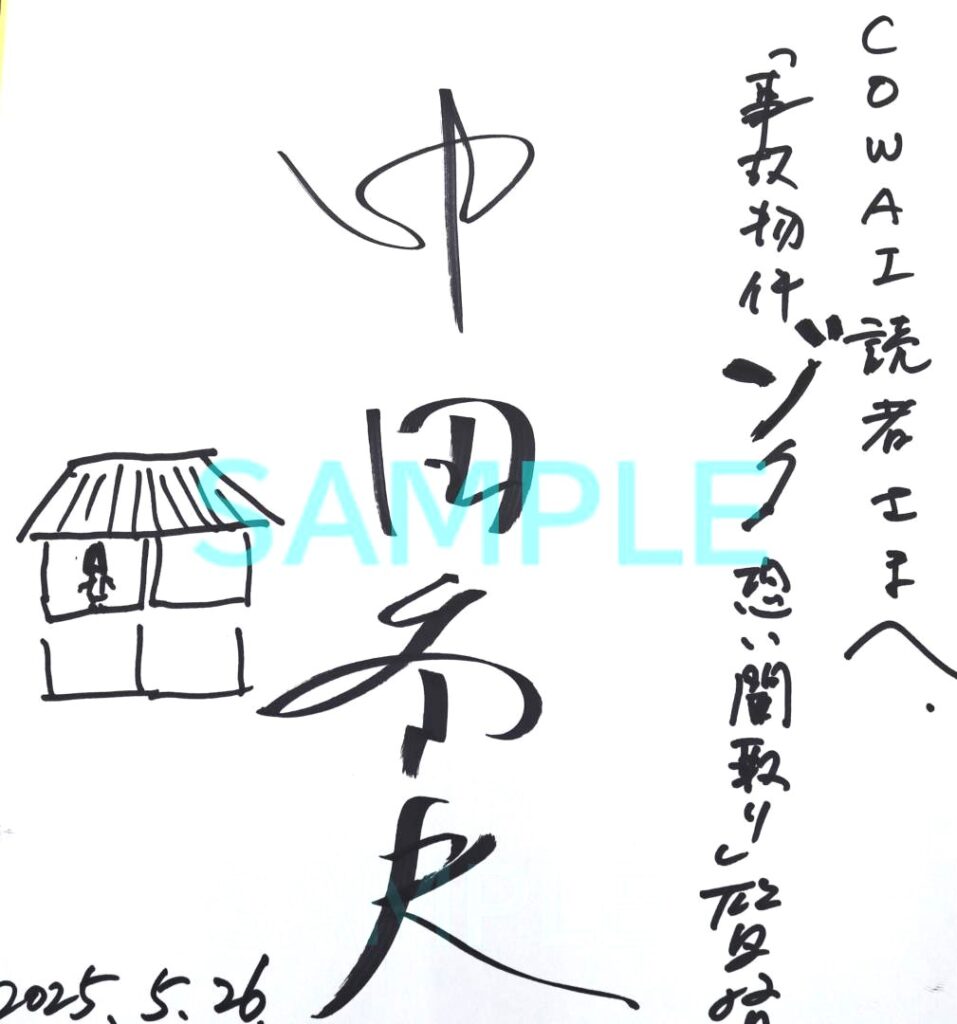 COWAI読者さまへ.
「事故物件ゾク恐い間取り」監督
中田秀夫
2025.5.26
SAMPLE